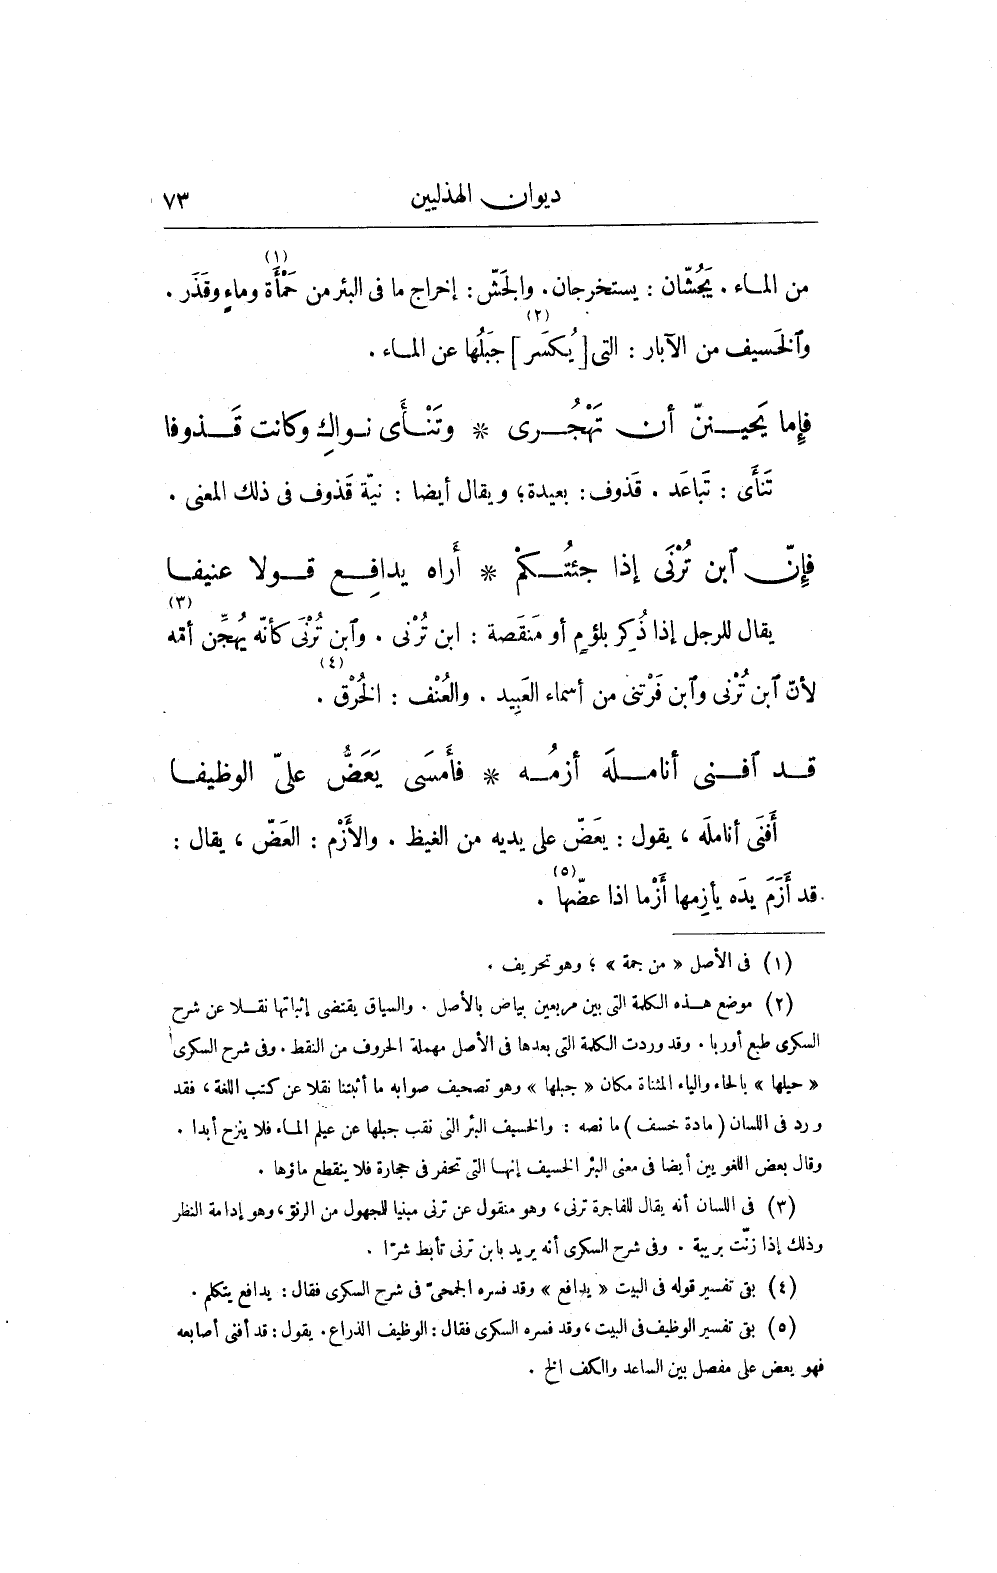 ديوان الهذليين ٧٣
من الماء . يَجُشّان : يستخرجان . والجَشّ : إخراج ما فى البئر من حَمْأَة (١) وماءٍ وقَذَر .
وٱلخَسيف من الآبار : التى [ يُكسَر (٢) ] جَبَلُها عن الماء .
فإِما يَحيننّ أن تَهْجُرى * وتَنْأَى نواكِ وكانت قَذوفا
تَنأَى : تَباعَد . قَذوف : بعيدة ؛ ويقال أيضا : نيّة قَذوف فى ذلك المعنى .
فإِنّ ٱبن تُرْنَى إذا جئتُكمْ * أَراه يدافِع قولا عنيفا
يقال للرجل إذا ذُكِر بلؤمٍ أو مَنقَصة : ابن تُرْنى . وٱبن تُرْنَى كأنّه يُهجِّن أمّه (٣)
لأنّ ٱبن تُرْنى وٱبن فَرْتنى من أسماء العَبِيد . والعُنْف : الخُرْق (٤) .
قد ٱفنى أنامله أزمُه * فأَمسَى يَعَضُّ علىّ الوظيفا
أَفنَى أناملَه ، يقول : يعَضّ على يديه من الغيظ . والأَزْم : العَضّ ، يقال :
قد أَزَمَ يدَه يأزِمها أَزْما اذا عضّها (٥) .
(١) فى الأصل « من جمة » ؛ وهو تحريف .
(٢) موضع هذه الكلمة التى بين مربعين بياض بالأصل . والسياق يقتضى إثباتها نقلا عن شرح
السكرى طبع أوربا . وقد وردت الكلمة التى بعدها فى الأصل مهملة الحروف من النقط . وفى شرح السكرى
« حيلها » بالحاء والياء المثناة مكان « جبلها » وهو تصحيف صوابه ما أثبتنا نقلا عن كتب اللغة ، فقد
ورد فى اللسان ( مادة خسف ) ما نصه : والخسيف البئر التى نقب جبلها عن عيلم الماء فلا ينزح أبدا .
وقال بعض اللغويين أيضا فى معنى البئر الخسيف إنها التى تحفر فى حجارة فلا ينقطع ماؤها .
(٣) فى اللسان أنه يقال للفاجرة ترنى ، وهو منقول عن ترنى مبنيا للجهول من الرنو ، وهو إدامة النظر
وذلك إذا زنّت بريبة . وفى شرح السكرى أنه يريد بابن ترنى تأبط شرّا .
(٤) بقى تفسير قوله فى البيت « يدافع » وقد فسره الجمحىّ فى شرح السكرى فقال : يدافع يتكلم .
(٥) بقى تفسير الوظيف فى البيت ، وقد فسره السكرى فقال : الوظيف الذراع . يقول : قد أفنى أصابعه
فهو يعض على مفصل بين الساعد واالكف الخ .